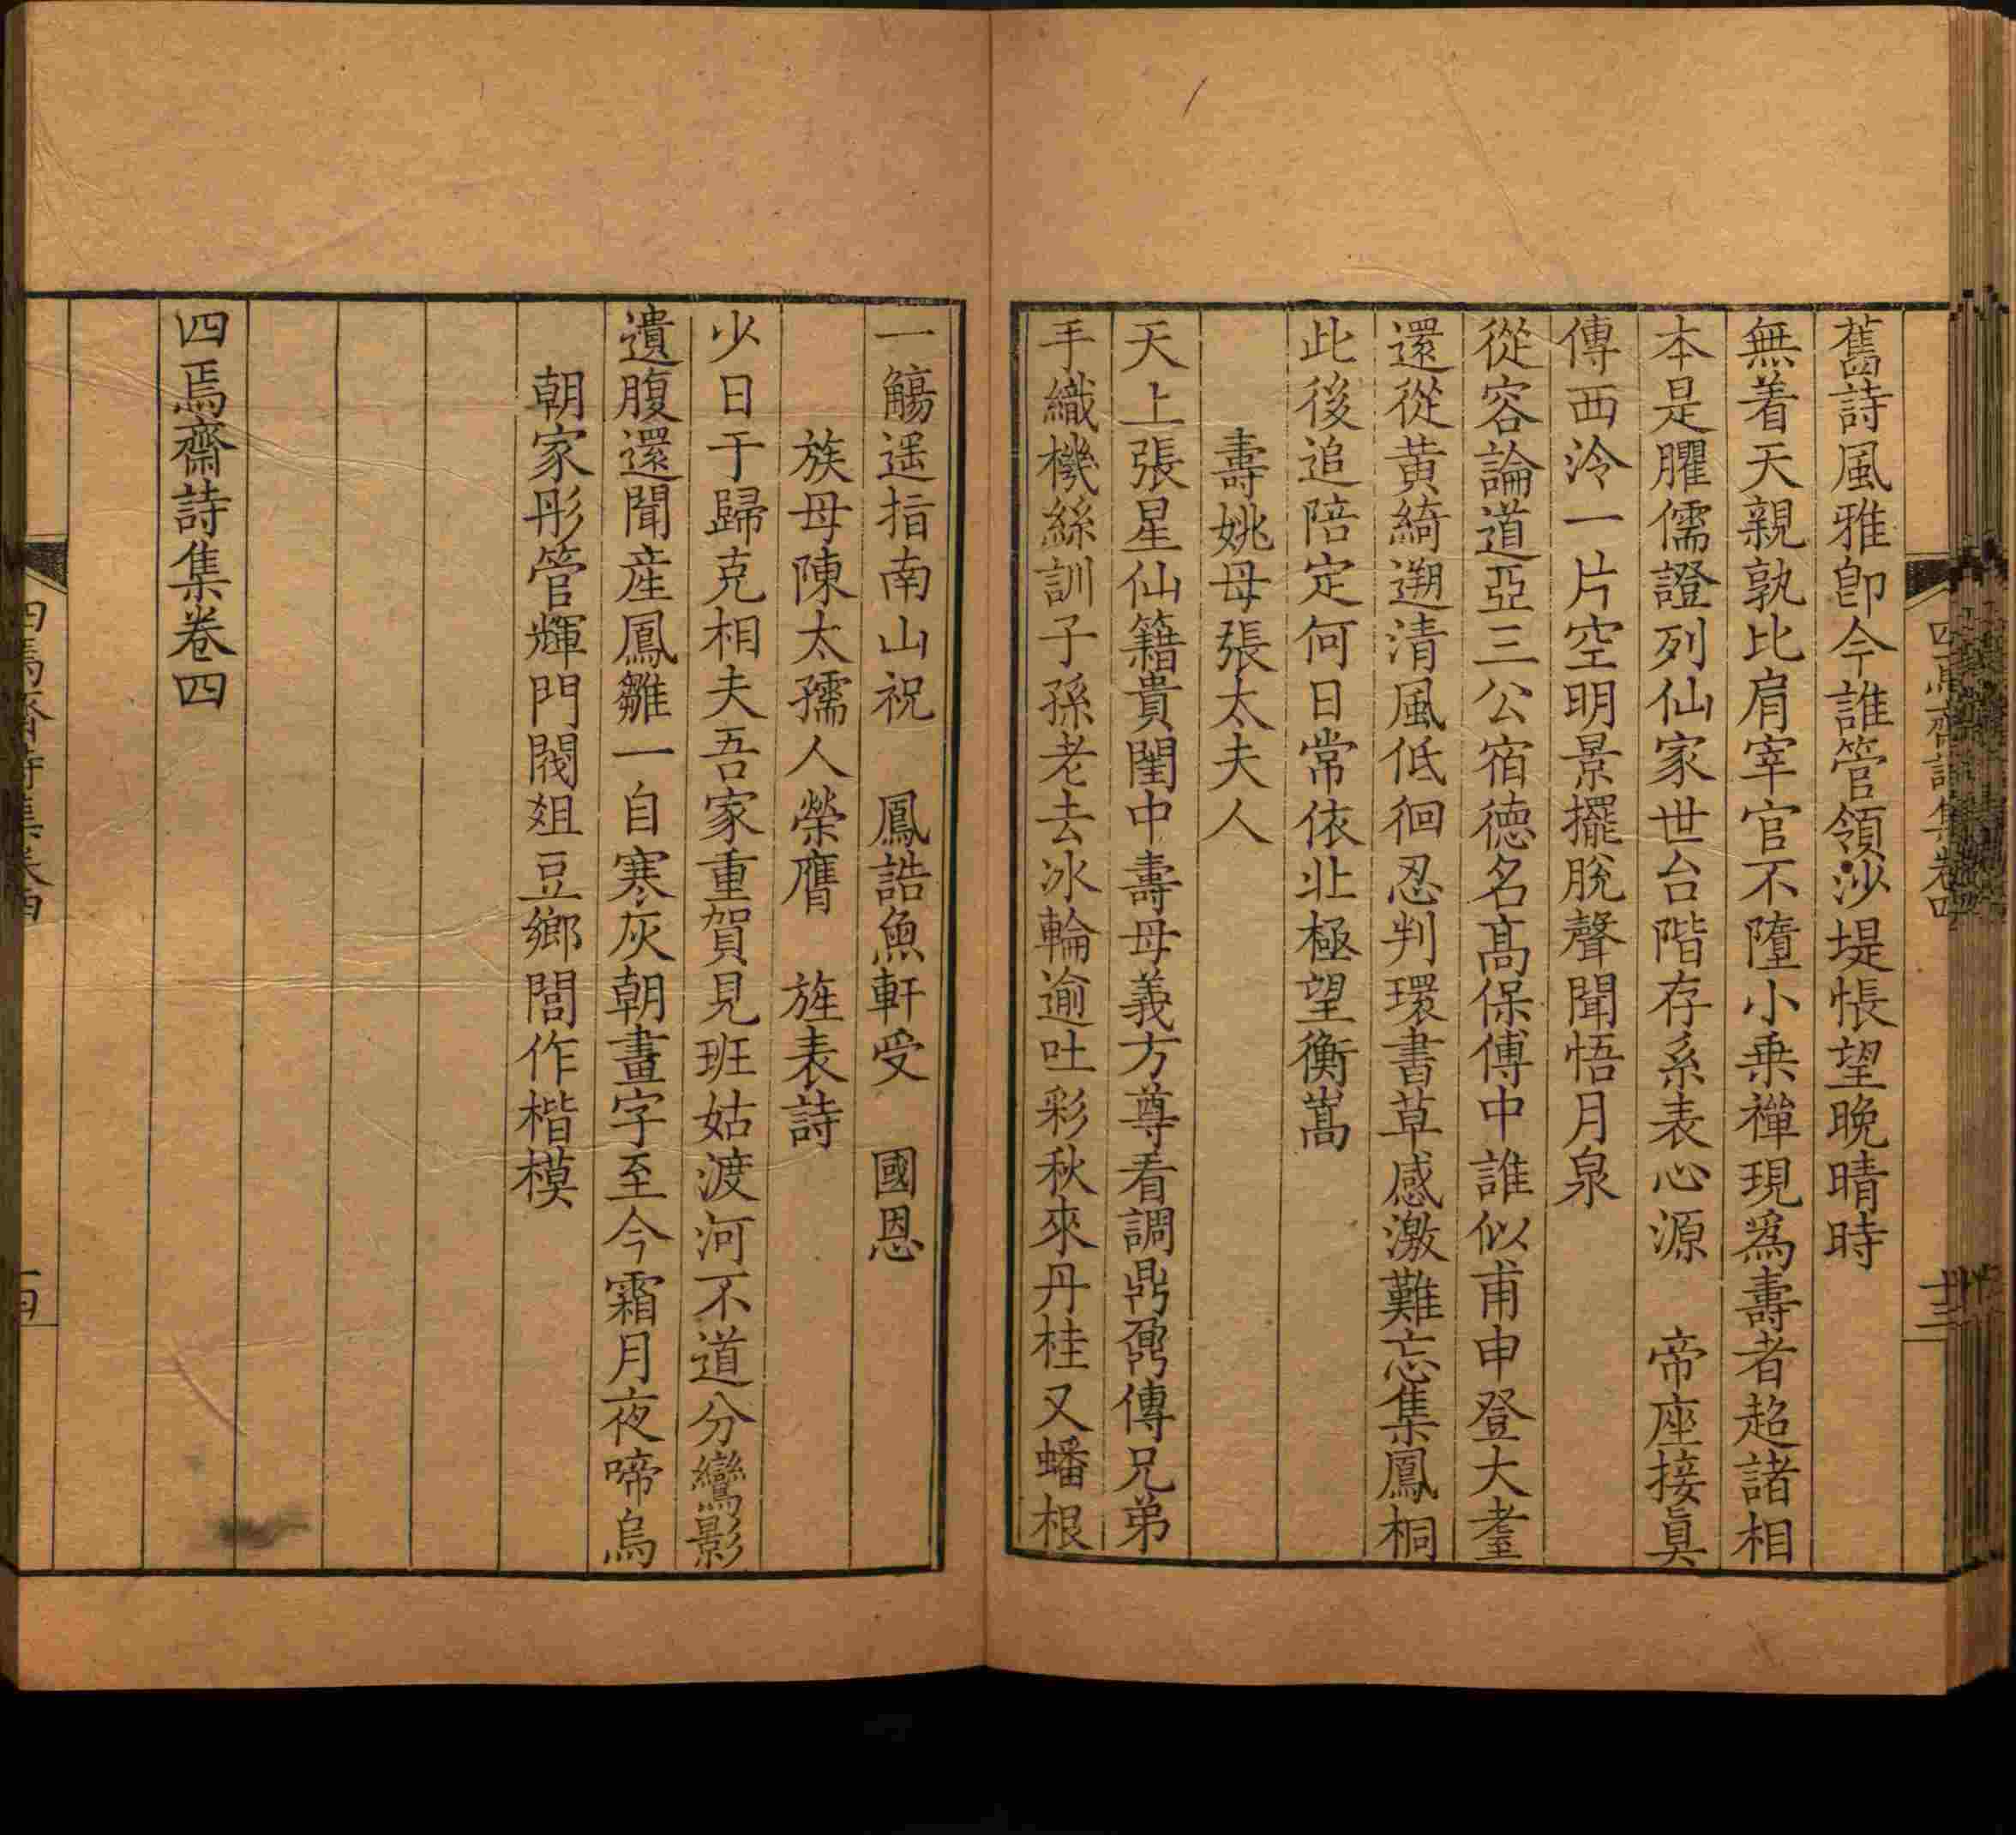 四焉齋詩集卷四
十三
舊詩風雅卽今誰管領沙堤悵望晚晴時
無着天親孰比肩宰官不墮小乗禪現爲壽者超諸相
本是臞儒證列仙家世台階存系表心源　帝座接眞
傳西泠一片空明景擺脫聲聞悟月泉
從容論道亞三公宿德名髙保傅中誰似甫申登大耋
還從黃綺遡清風低徊忍判環書草感激難忘集鳳桐
此後追陪定何日常依北極望衡嵩
壽姚母張太夫人
天上張星仙籍貴閨中壽母義方尊看調鼎鼐傳兄弟
手織機絲訓子孫老去冰輪逾吐彩秋來丹桂又蟠根
一觴遥指南山祝　鳳誥魚軒受　國恩
族母陳太孺人榮膺　旌表詩
少日于歸克相夫吾家重賀見班姑渡河不道分鸞影
遺腹還聞産鳳雛一自寒灰朝畫字至今霜月夜啼烏
朝家彤管輝門閥俎豆鄉閭作楷模
四焉齋詩集卷四
四焉齋詩集卷四